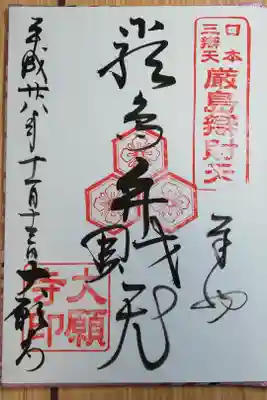 日本
三辯天
厳島辯財天
奉拝
厳島弁財天
平成廿八年十一月十三日大願寺
大願
寺印